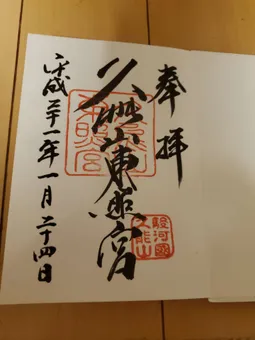 奉拝
駿河國
久能山
久能山東照宮
平成三十一年一月二十四日